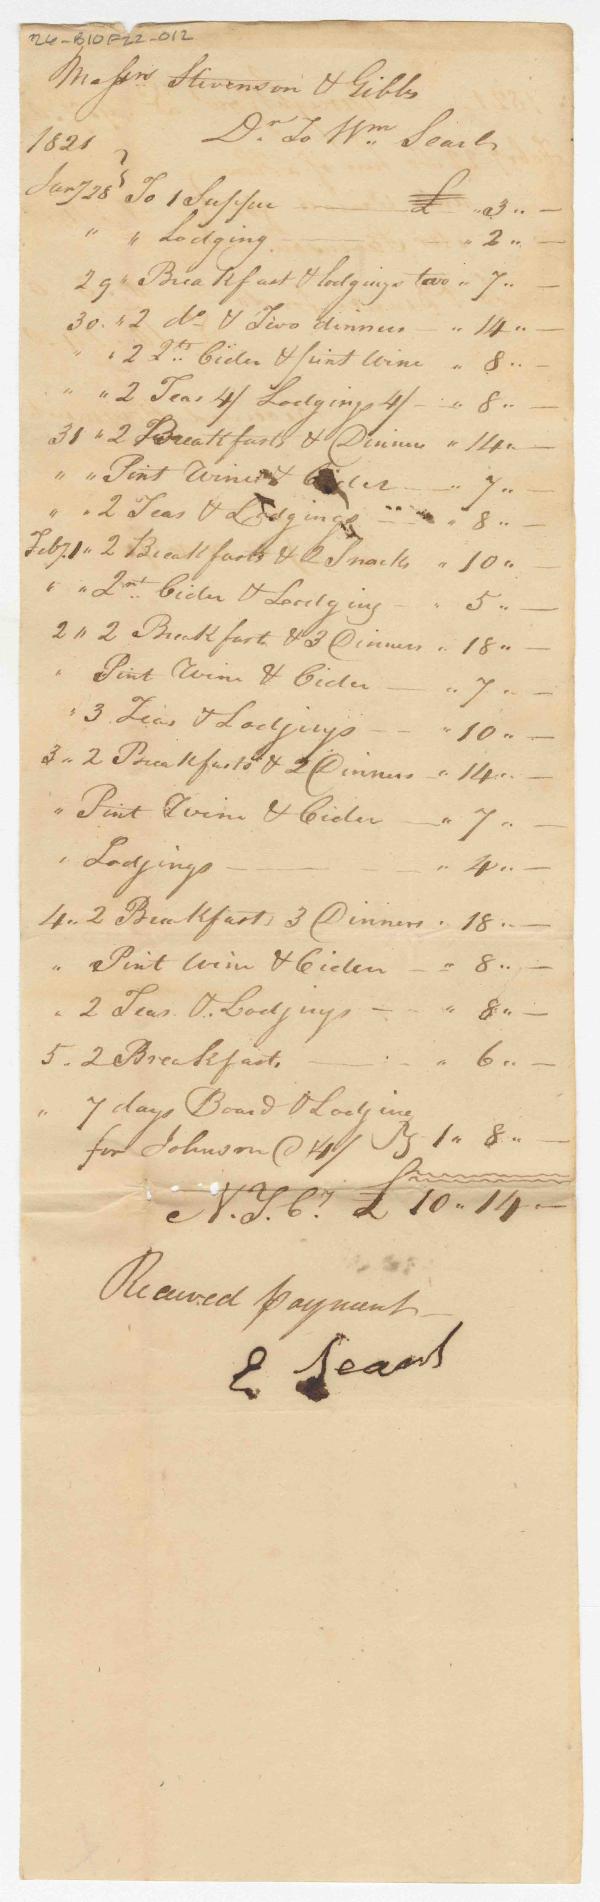 26-B10F22-012
Messrs Stevenson & Gibbs
Dr. To Wm. Searls
1821
Jany 28 To 1 Supper — £ " 3 " —
" " Lodging — " 2 " —
29 " Breakfast & lodgings two " 7 " —
30. " 2 do & Two dinners — " 14 " —
" " 2 Cider & pint Wine " 8 " —
" " 2 Teas 4/ Lodgings 4/ — " 8 " —
31 " 2 Breakfasts & Dinners " 14 " —
" " Pint Wine & Cider — " 7 " —
" " 2 Teas & Lodgings — " 8 " —
Feby 1 " 2 Breakfasts & 2 Snacks " 10 " —
" " 2 Cider & Lodging — " 5 " —
2 " 2 Breakfasts & 3 Dinners " 18 " —
" Pint Wine & Cider — " 7 " —
" 3 Teas & Lodjings — " 10 " —
3 " 2 Breakfasts & 2 Dinners " 14 " —
" Pint Wine & Cider — " 7 " —
" Lodjings — " 4 " —
4 " 2 Breakfasts 3 Dinners " 18 " —
" Pint Wine & Cider — " 8 " —
" 2 Teas & Lodjings — " 8 " —
5 . 2 Breakfasts — " 6 " —
" 7 days Board & Lodjing
for Johnson @ 4/ 1 " 8 " —
N.Y. Cy £ 10 " 14 " —
Received payment —
E Searls